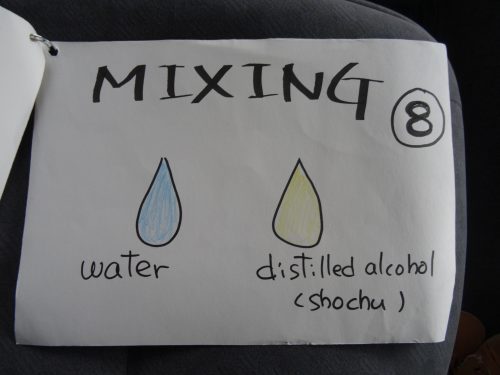 MIXING
8
water
distilled alcohol
(shochu)